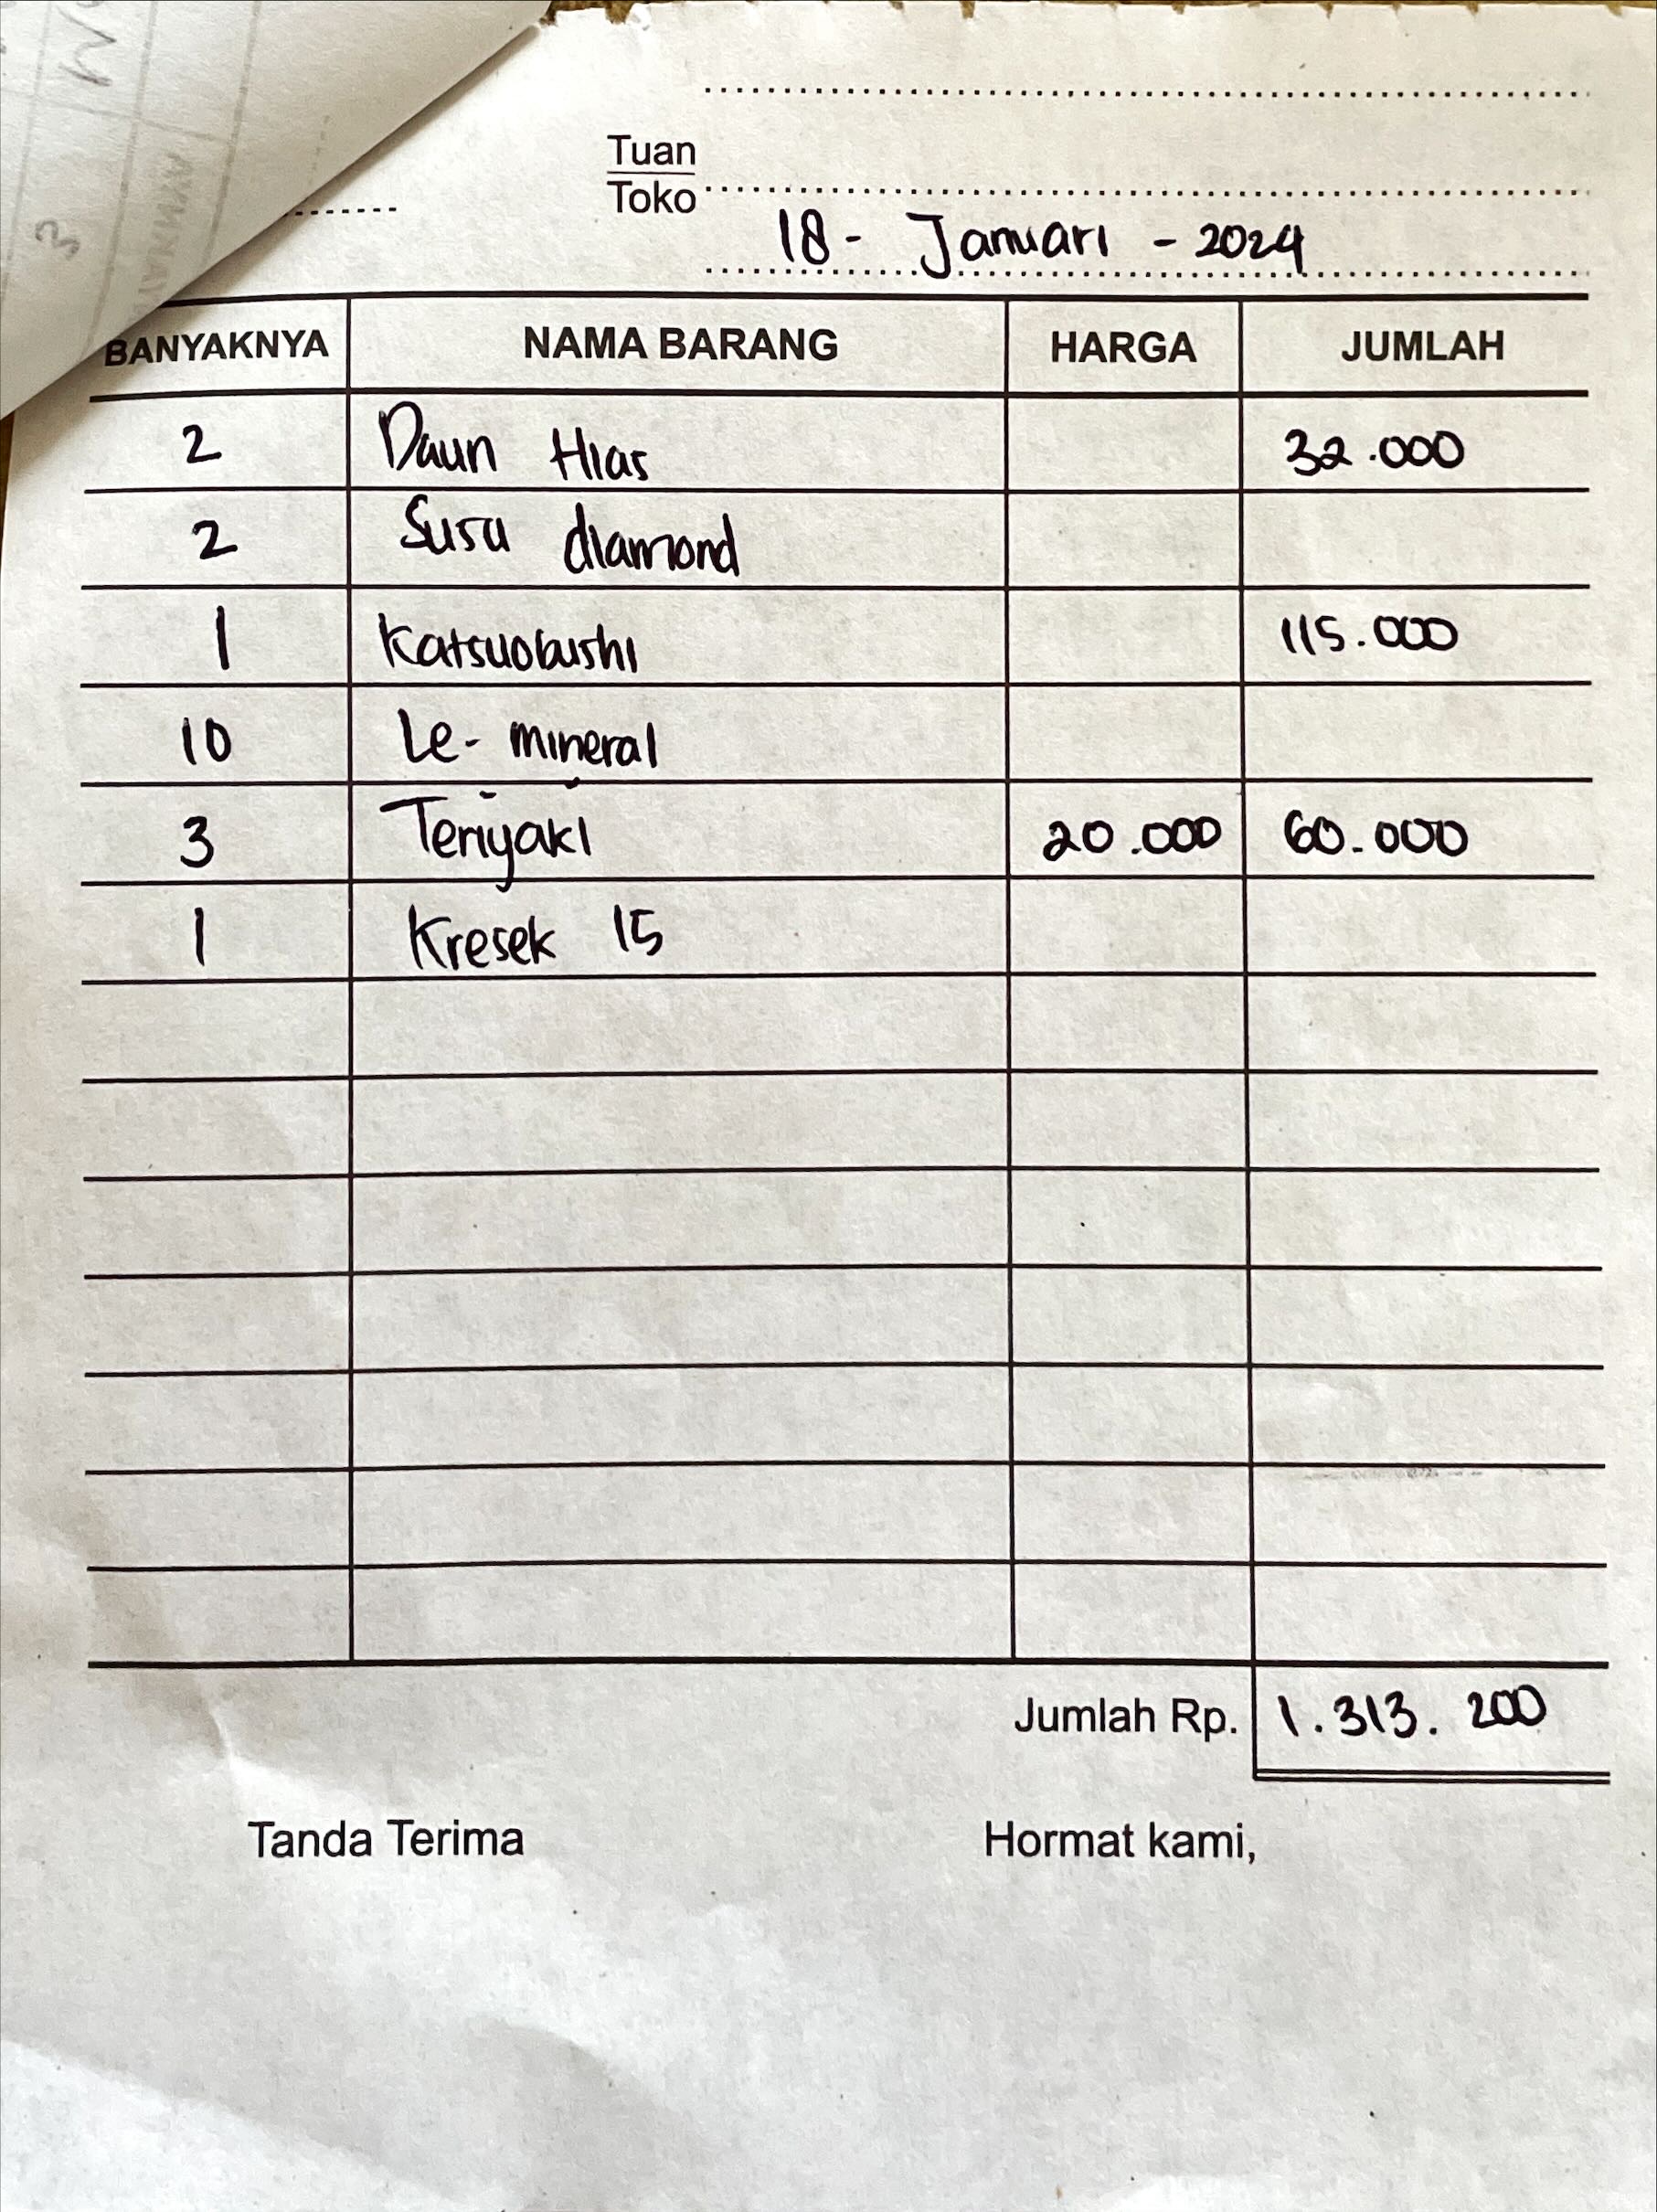 Tuan
Toko
18 - Januari - 2024
BANYAKNYA NAMA BARANG HARGA JUMLAH
2 Daun Hias 32.000
2 Susu diamond
1 Katsuobushi 115.000
10 Le- mineral
3 Teriyaki 20.000 60.000
1 Kresek 15
Jumlah Rp. 1.313.200
Tanda Terima Hormat kami,